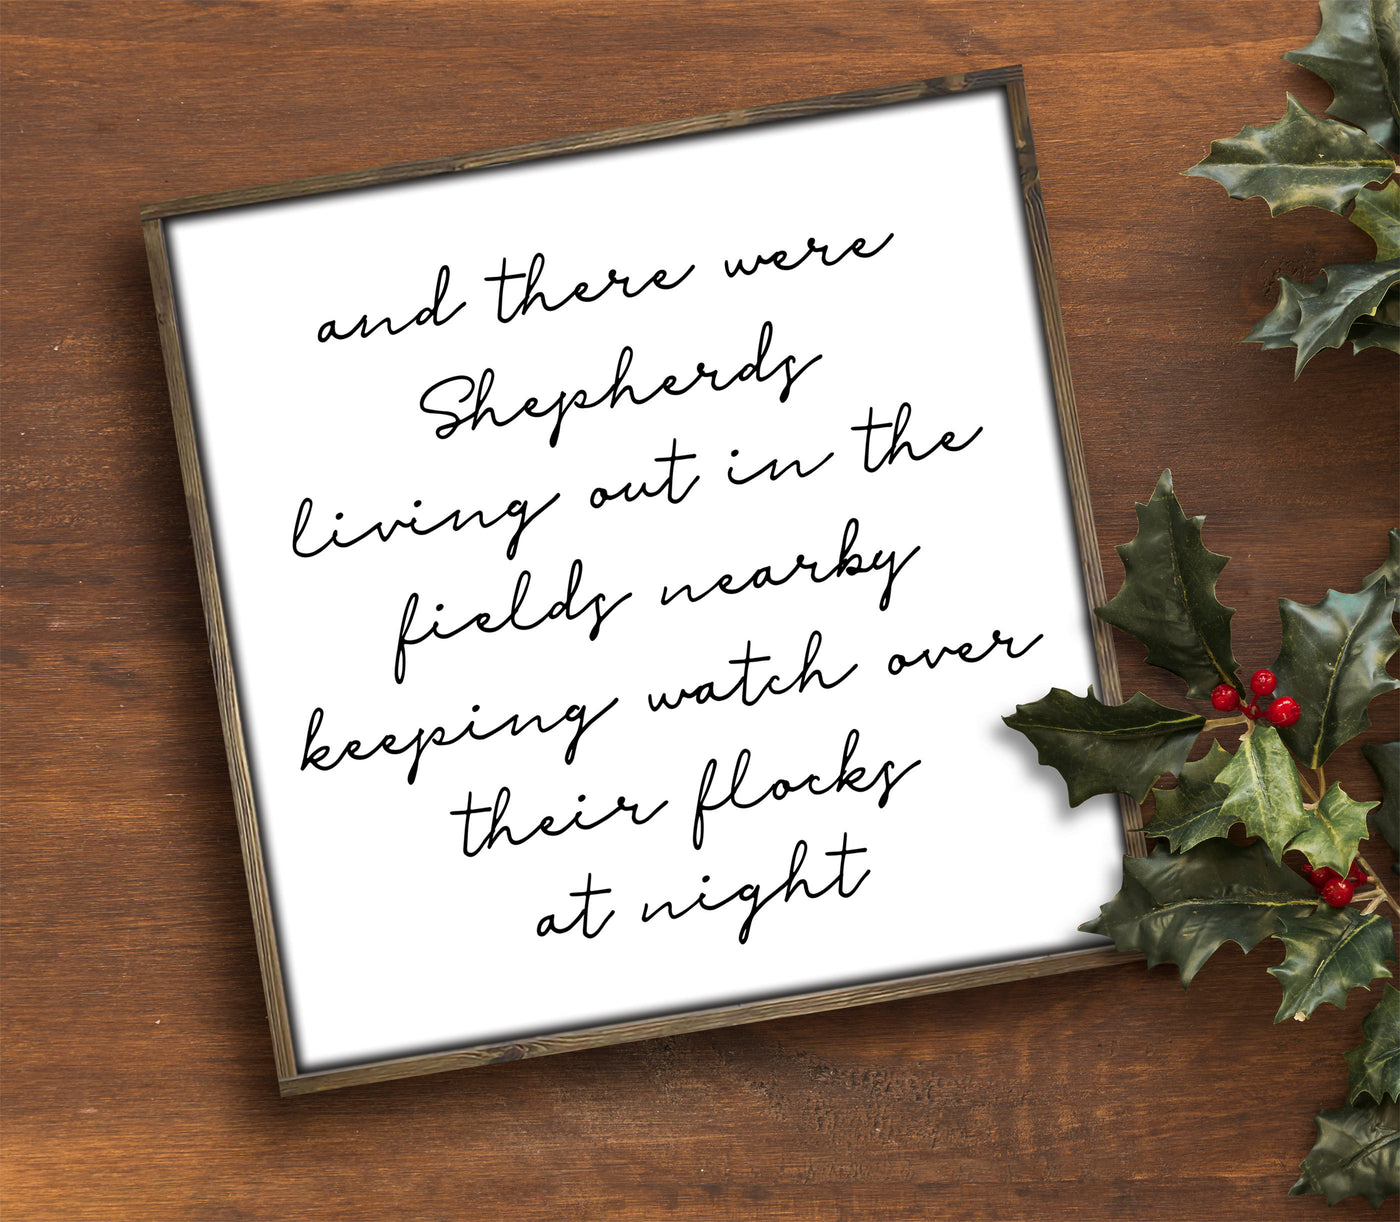 and there were
Shepherds
living out in the
fields nearby
keeping watch over
their flocks
at night